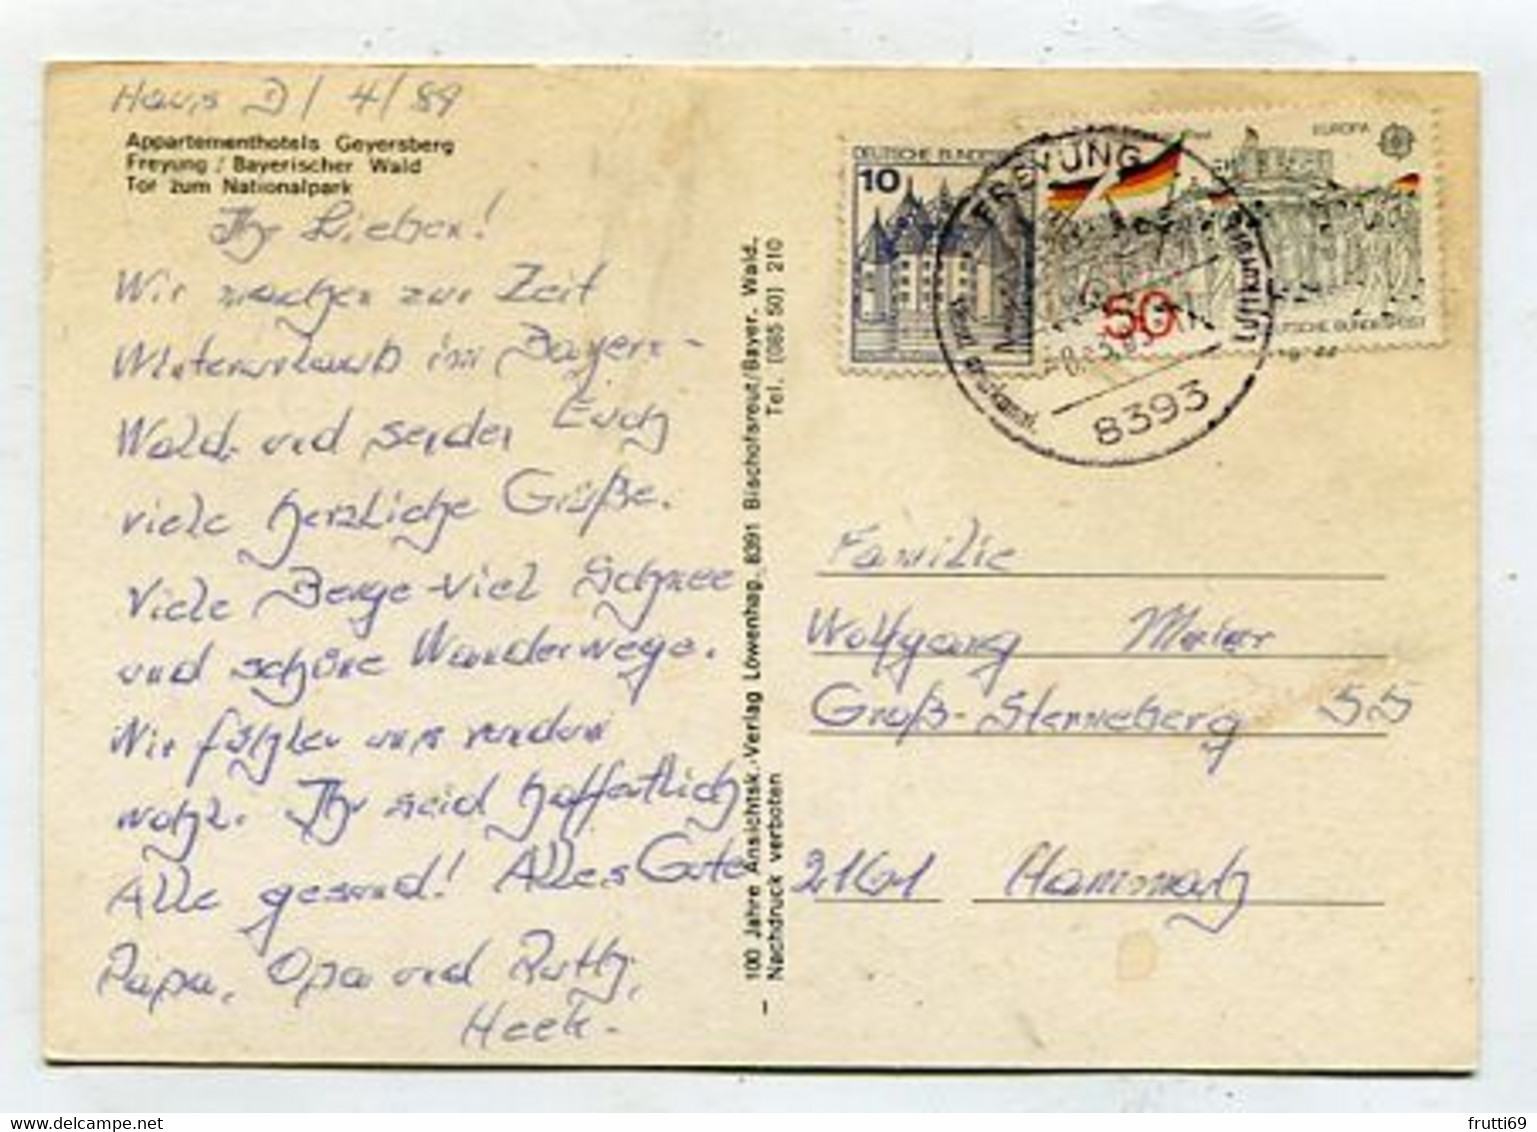 Haus D / 4/89
Appartementhotels Geyersberg
Freyung / Bayerischer Wald
Tor zum Nationalpark
Ihr Lieben!
Wir machen zur Zeit
Winterurlaub im Bayern-
Wald. und senden Euch
viele herzliche Grüße.
Viele Berge - viel Schnee
und schöne Wanderwege.
Wir fühlen uns
wohl. Ihr seid hoffentlich
Alle gesund! Alles Gute
Papa, Opa und Ruth,
Heek.
– 100 Jahre Ansichtsk.-Verlag Löwenhag, 8391 Bischofsreut/Bayer. Wald.
Nachdruck verboten Tel. (085 50) 210
DEUTSCHE BUNDES
10
EUROPA
50
DEUTSCHE BUNDESPOST
1982
FREYUNG
Luftkurort
8393
Familie
Wolfgang Meier
Groß-Sterneberg 55
2161 Hammah
frutti69